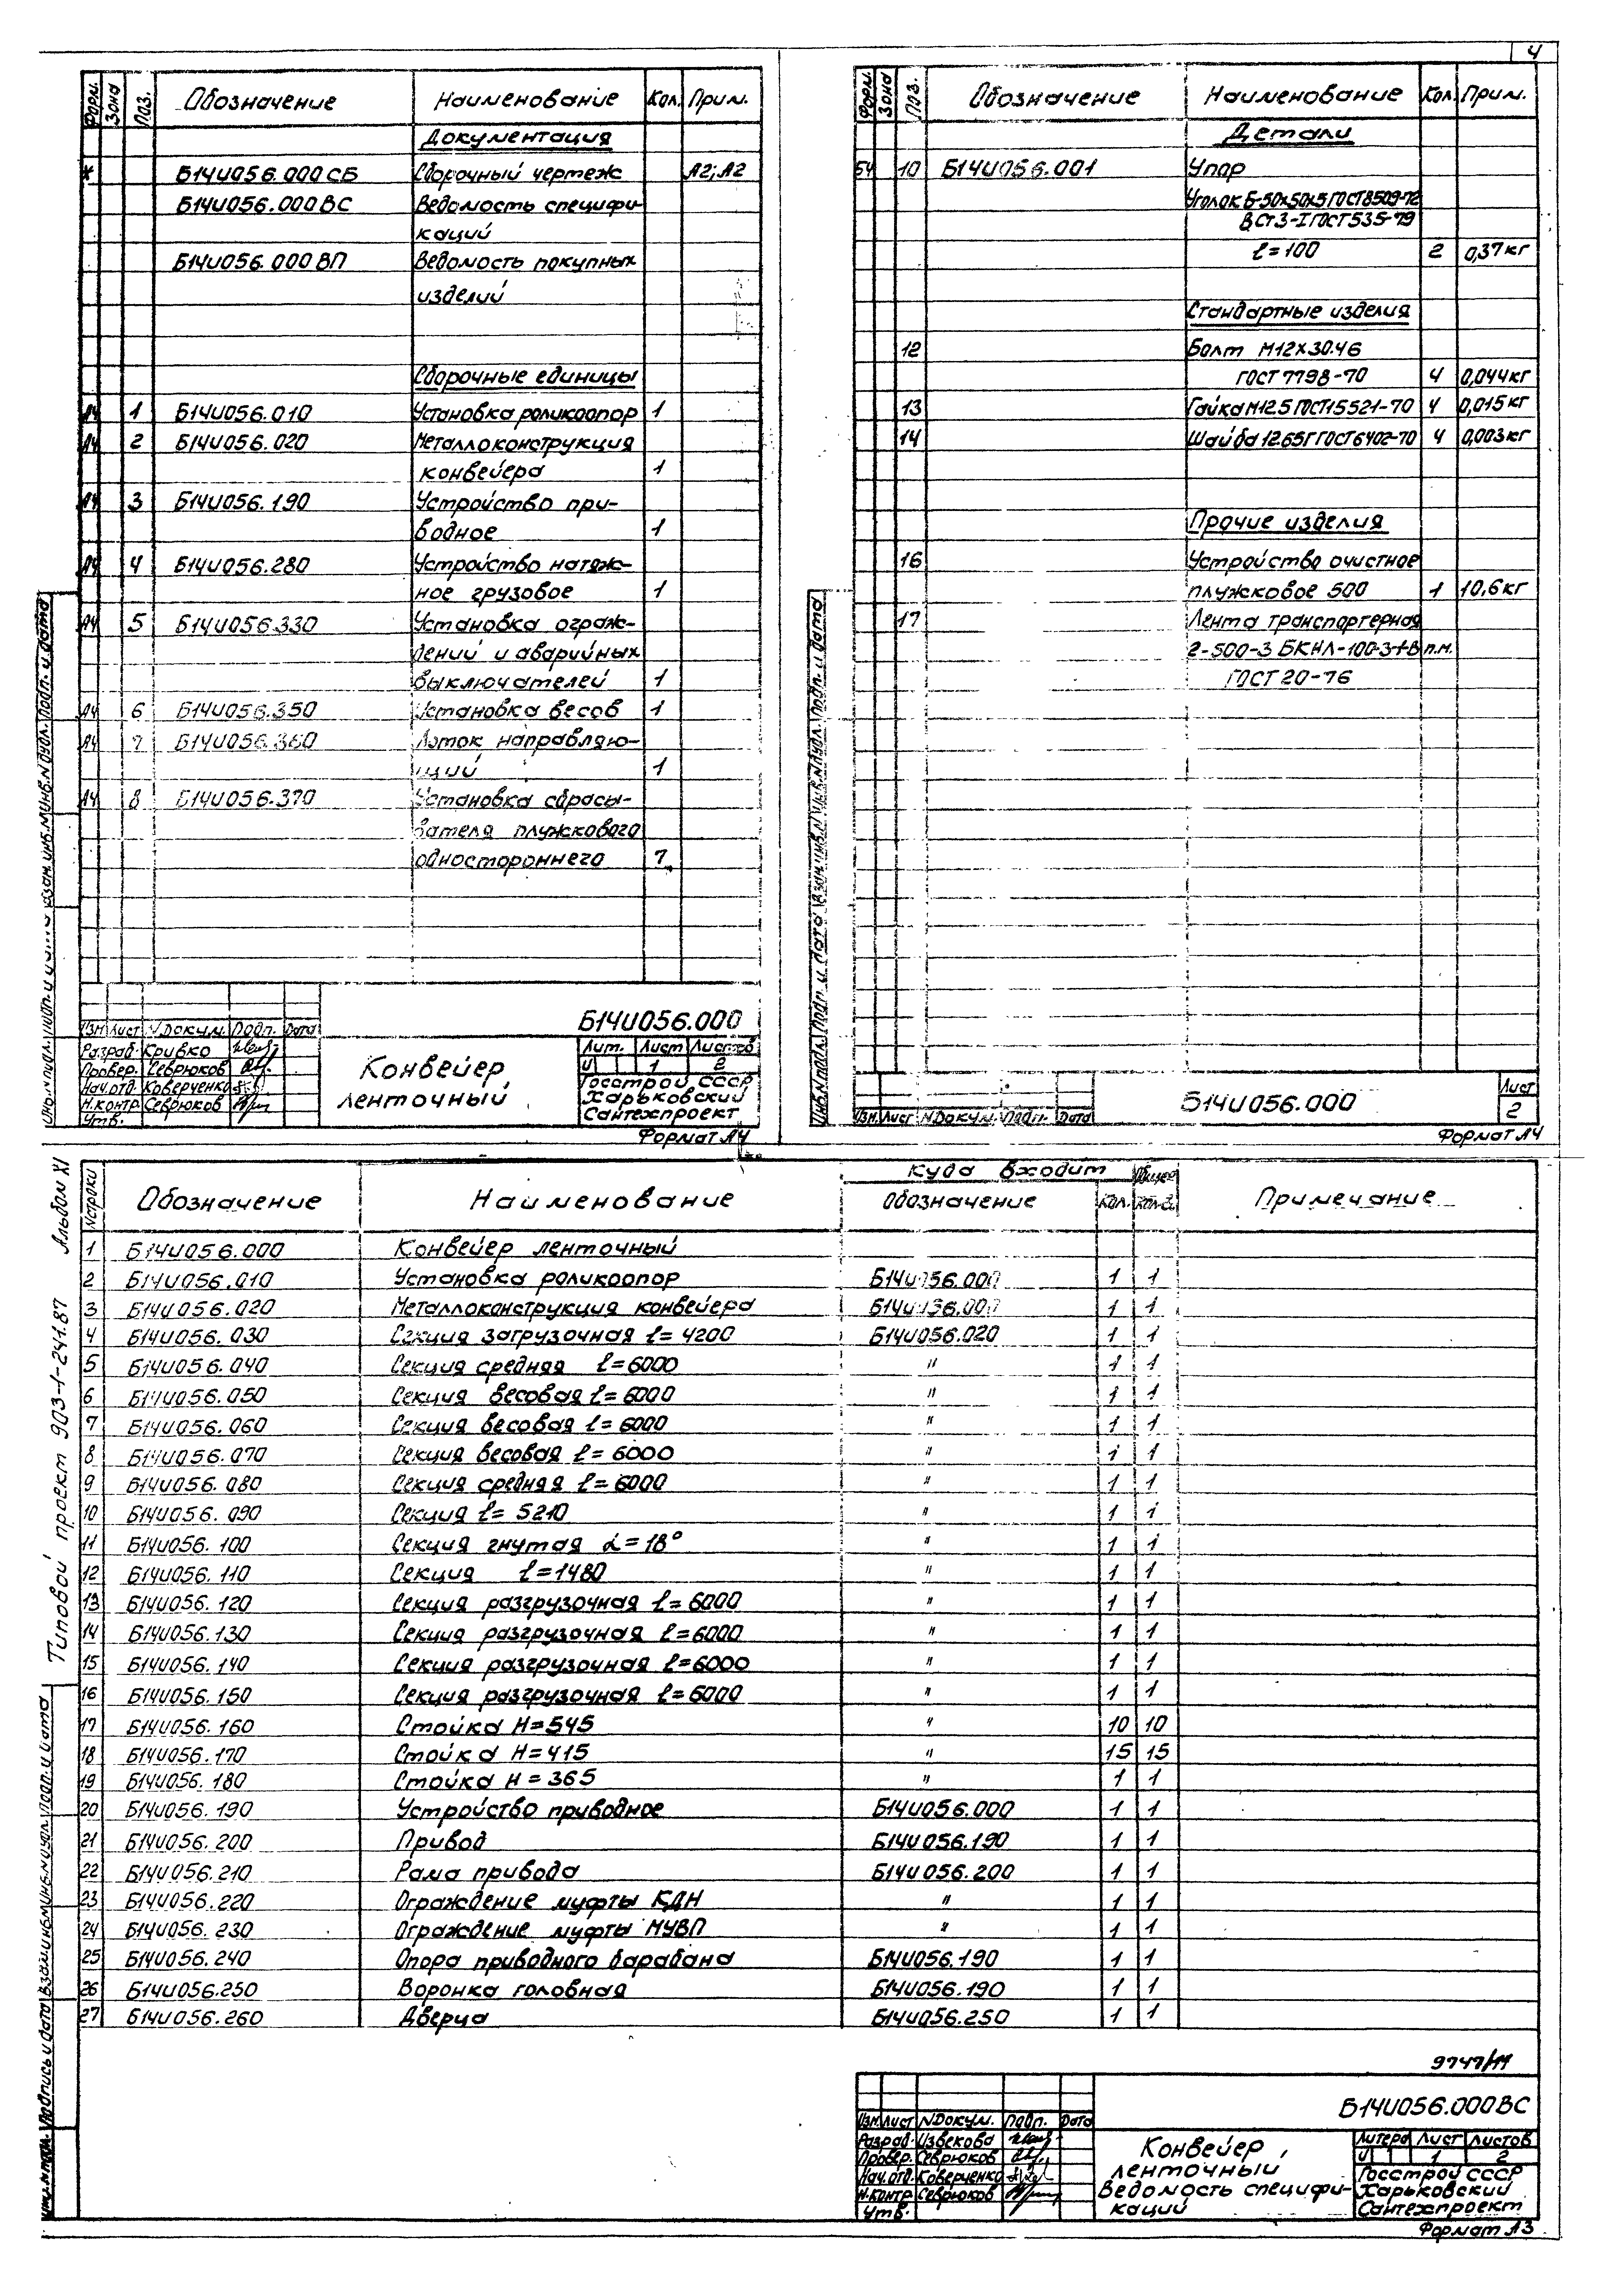 4
Форм. Зона Поз. Обозначение Наименование Кол. Прим.
Документация
* Б14И056.000 СБ Сборочный чертеж А2; А2
Б14И056.000 ВС Ведомость специфи-
каций
Б14И056.000 ВП Ведомость покупных
изделий
Сборочные единицы
А4 1 Б14И056.010 Установка роликоопор 1
А4 2 Б14И056.020 Металлоконструкция
конвейера 1
А4 3 Б14И056.190 Устройство при-
водное 1
А4 4 Б14И056.280 Устройство натяж-
ное грузовое 1
А4 5 Б14И056.330 Установка ограж-
дений и аварийных
выключателей 1
А4 6 Б14И056.350 Установка весов 1
А4 7 Б14И056.360 Лоток направляю-
щий 1
А4 8 Б14И056.370 Установка сбрасы-
вателя плужкового
одностороннего 7
Б14И056.000
Изм. Лист N Докум. Подп. Дата
Разраб. Кривко
Провер. Севрюков
Нач. отд. Коверченко
Н.контр. Севрюков
Утв.
Конвейер
ленточный
Лит. Лист Листов
И 1 2
Госстрой СССР
Харьковский
Сантехпроект
Формат А4
Форм. Зона Поз. Обозначение Наименование Кол. Прим.
Детали
БЧ 10 Б14И056.001 Упор
Уголок Б-50х50х5 ГОСТ 8509-72
ВСт3-I ГОСТ 535-79
ℓ=100 2 0,37кг
Стандартные изделия
12 Болт М12Х30.46
ГОСТ 7798-70 4 0,044кг
13 Гайка М12.5 ГОСТ 15521-70 4 0,015кг
14 Шайба 12.65Г ГОСТ 6402-70 4 0,003кг
Прочие изделия
16 Устройство очистное
плужковое 500 1 10,6кг
17 Лента транспортерная
2-500-3 БКНЛ-100-3-1-В п.м.
ГОСТ 20-76
Инв.N подл. Подп. и дата Взам.инв.N Инв.N дубл. Подп. и дата
Изм. Лист N Докум. Подп. Дата
Б14И056.000
Лист
2
Формат А4
Типовой проект 903-1-241.87 Альбом XI
N строки Обозначение Наименование Куда входит Общее кол-во Примечание
Обозначение Кол.
1 Б14И056.000 Конвейер ленточный
2 Б14И056.010 Установка роликоопор Б14И056.000 1 1
3 Б14И056.020 Металлоконструкция конвейера Б14И056.000 1 1
4 Б14И056.030 Секция загрузочная ℓ=4200 Б14И056.020 1 1
5 Б14И056.040 Секция средняя ℓ=6000 " 1 1
6 Б14И056.050 Секция весовая ℓ=6000 " 1 1
7 Б14И056.060 Секция весовая ℓ=6000 " 1 1
8 Б14И056.070 Секция весовая ℓ=6000 " 1 1
9 Б14И056.080 Секция средняя ℓ=6000 " 1 1
10 Б14И056.090 Секция ℓ=5210 " 1 1
11 Б14И056.100 Секция гнутая α=18° " 1 1
12 Б14И056.110 Секция ℓ=1480 " 1 1
13 Б14И056.120 Секция разгрузочная ℓ=6000 " 1 1
14 Б14И056.130 Секция разгрузочная ℓ=6000 " 1 1
15 Б14И056.140 Секция разгрузочная ℓ=6000 " 1 1
16 Б14И056.150 Секция разгрузочная ℓ=6000 " 1 1
17 Б14И056.160 Стойка Н=545 " 10 10
18 Б14И056.170 Стойка Н=415 " 15 15
19 Б14И056.180 Стойка Н=365 " 1 1
20 Б14И056.190 Устройство приводное Б14И056.000 1 1
21 Б14И056.200 Привод Б14И056.190 1 1
22 Б14И056.210 Рама привода Б14И056.200 1 1
23 Б14И056.220 Ограждение муфты КДН " 1 1
24 Б14И056.230 Ограждение муфты МУВП " 1 1
25 Б14И056.240 Опора приводного барабана Б14И056.190 1 1
26 Б14И056.250 Воронка головная Б14И056.190 1 1
27 Б14И056.260 Дверца Б14И056.250 1 1
9747/11
Б14И056.000ВС
Изм. Лист N Докум. Подп. Дата
Разраб. Извекова
Провер. Севрюков
Нач.отд. Коверченко
Н.контр. Севрюков
Утв.
Конвейер
ленточный
Ведомость специфи-
каций
Литера Лист Листов
И 1 2
Госстрой СССР
Харьковский
Сантехпроект
Формат А3